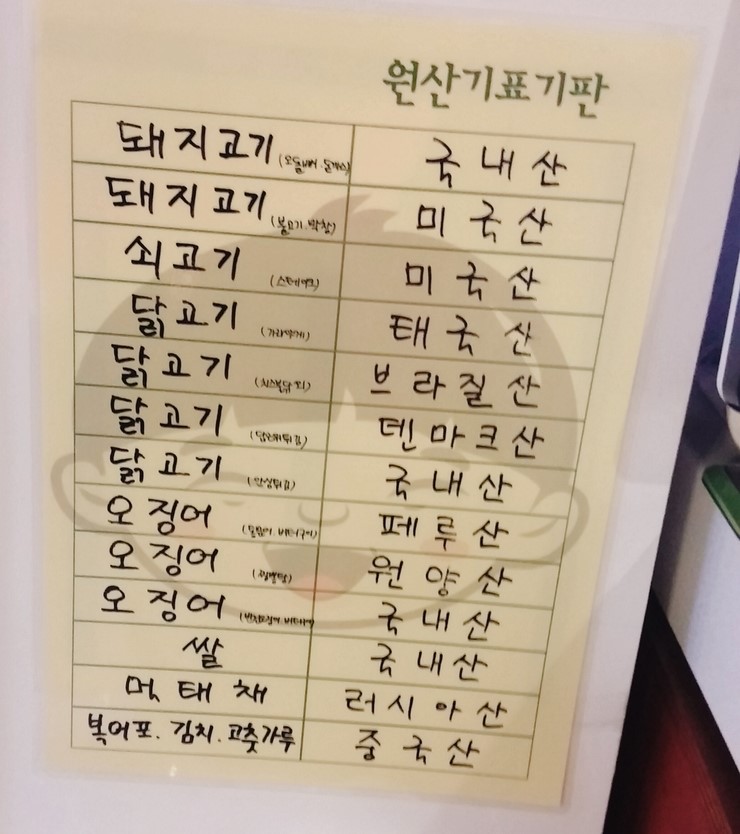 원산기표기판
돼지고기 국내산
돼지고기 (불고기.막창) 미국산
쇠고기 (스테이크) 미국산
닭고기 태국산
닭고기 브라질산
닭고기 덴마크산
닭고기 국내산
오징어 페루산
오징어 원양산
오징어 국내산
쌀 국내산
먹태채 러시아산
북어포. 김치. 고춧가루 중국산